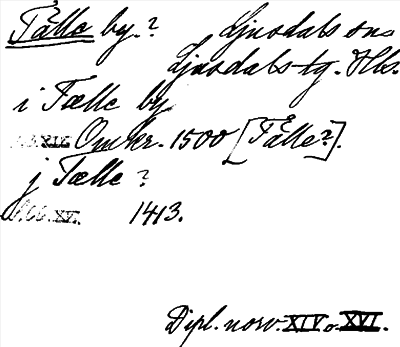 Tålle by.? Ljusdals sns
Ljusdals tg. Hls.
i Tælle by
XIV Omkr. 1500 [Tålle?].
j Tælle ?
XVI. 1413.
Dipl. norv. XIV o. XVI.